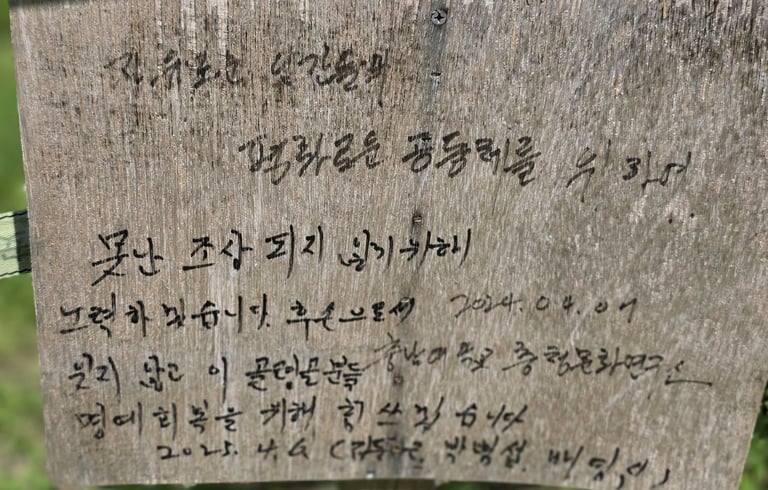 자유로운 인간들의
평화로운 공동체를 위하여..
못난 조상 되지 않기 위해
노력하겠습니다. 후손으로서
2024.04.07
잊지 않고 이 골령골분들
충남대학교 충청문화연구소
명예회복을 위해 힘쓰겠습니다
2025. 4. 6. 박병섭